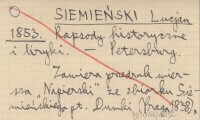 SIEMIEŃSKI Lucjan
1853. Rapsody historyczne
i liryki. — Petersburg.
Zawiera przedruk wier-
sza "Napierski" ze zbiorku Sie-
mieńskiego pt. Dumki (Praga 1838).